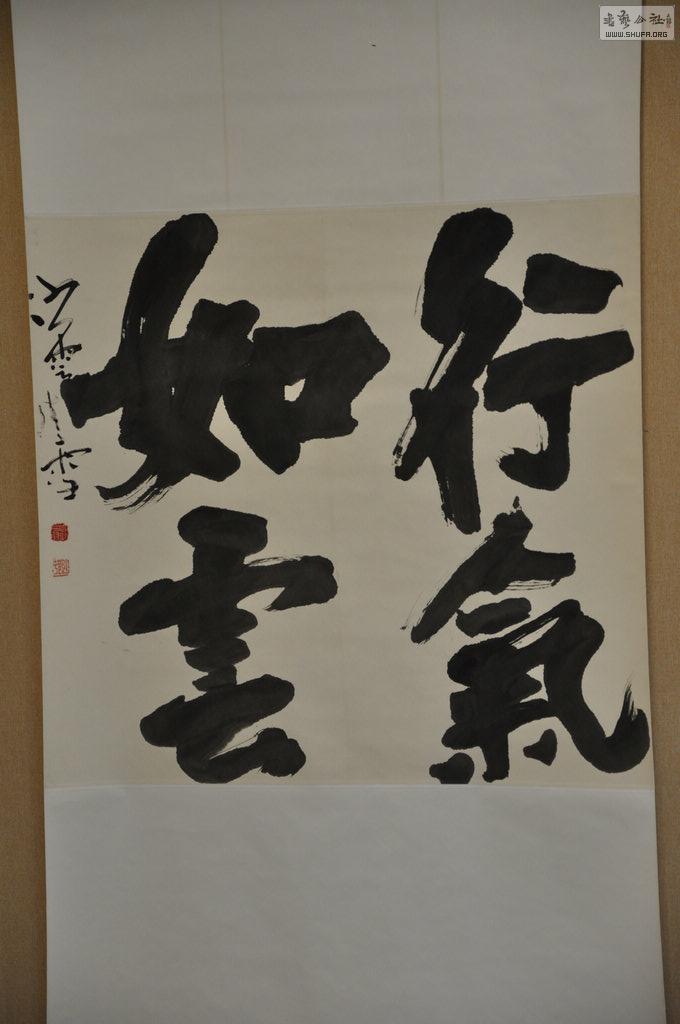 行氣
如雲
書藝公社
WWW.SHUFA.ORG